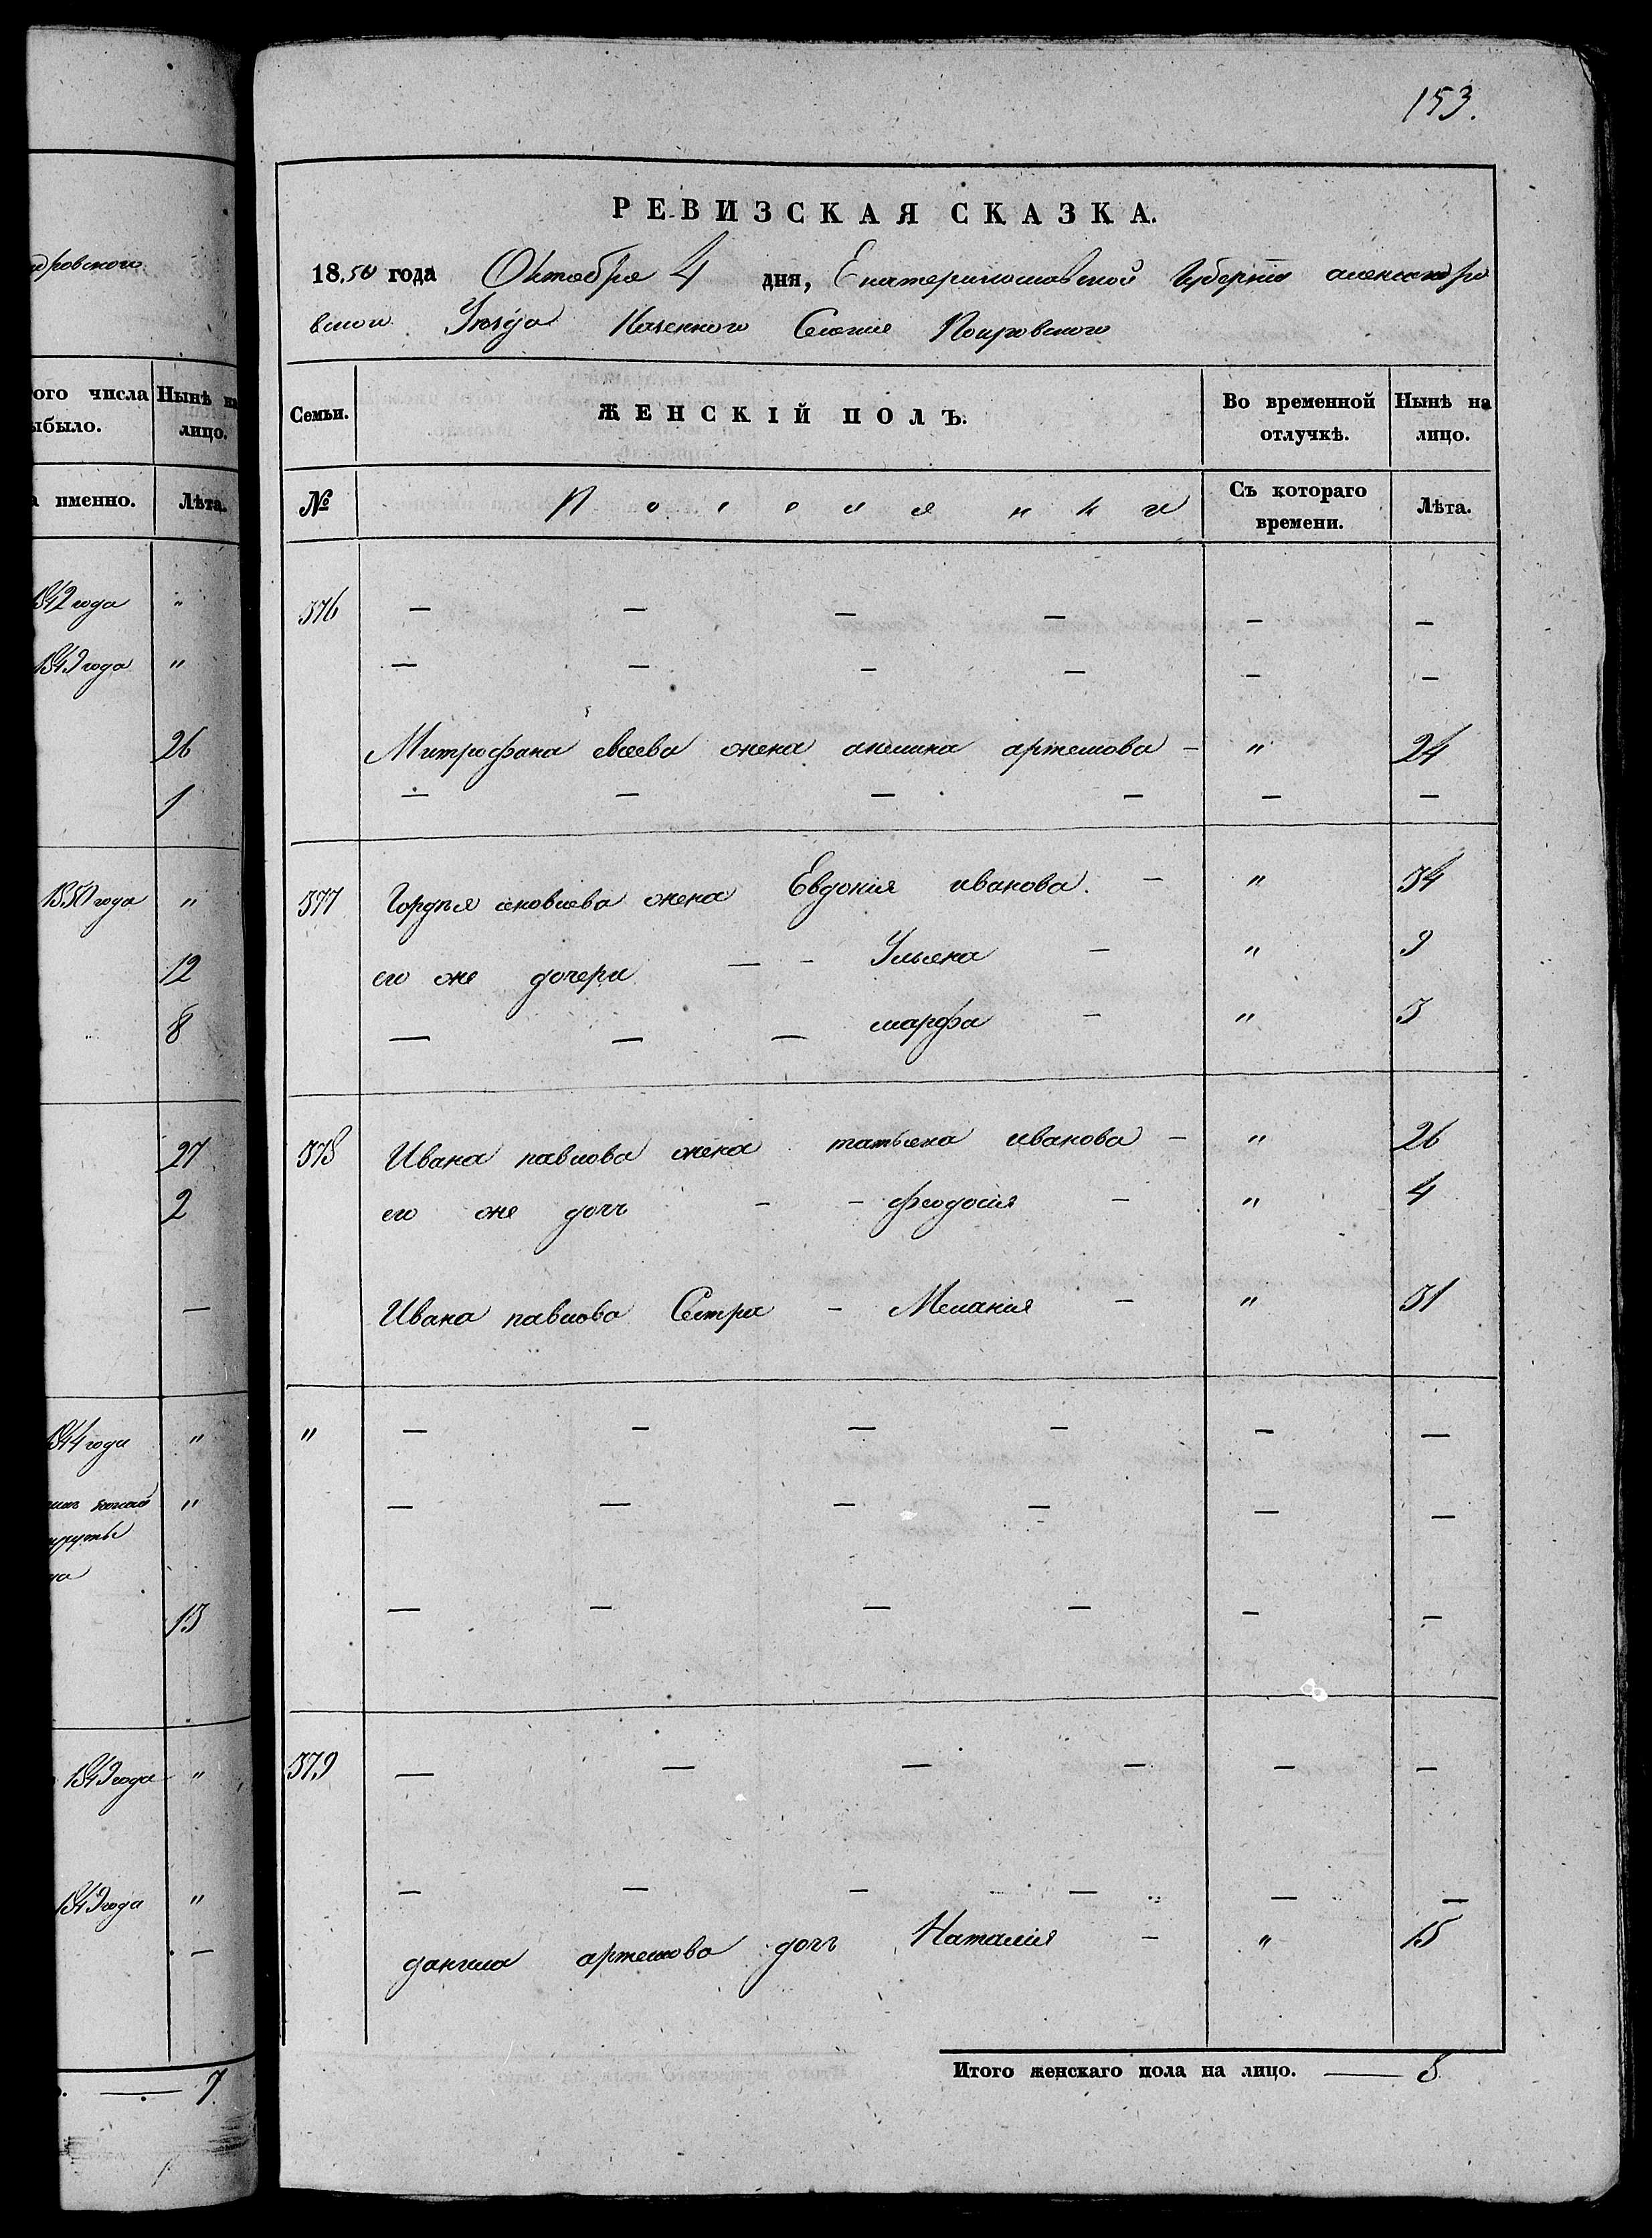 153.
РЕВИЗСКАЯ СКАЗКА.
1850 года Октября 4 дня, Екатеринославской Губернiи александро
вского Уѣзда Казенного Селенiя Покровского
Семьи. ЖЕНСКIЙ ПОЛЪ. Во временной отлучкѣ. Нынѣ на лицо.
№ Поселянки Съ котораго времени. Лѣта.
376 — — — — — —
— — — — — —
Митрофана жена акилина артемова — " 24
— — — — — —
377 Гордѣя жена Евдокiя иванова. — " 34
его же дочери — - Ульяна — " 9
— — — марфа — " 3
378 Ивана павлова жена татьяна иванова — " 26
его же дочь - - феодосiя — " 4
Ивана павлова Сестра - Меланiя — " 31
" — — — — — —
— — — — — —
— — — — — —
379 — — — — — —
— — — — — —
данила артемова дочь Наталiя — " 15
Итого женскаго пола на лицо. — 8
дровского
ого числа Нынѣ на
ыбыло. лицо.
а именно. Лѣта.
1842 года "
1849 года "
26
1
1850 года "
12
8
27
2
—
1844 года "
"
13
1849 года "
1849 года "
—
— 7